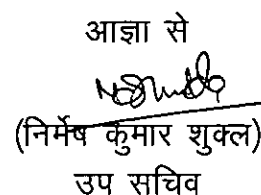 आज्ञा से
(निर्मेष कुमार शुक्ल)
उप सचिव